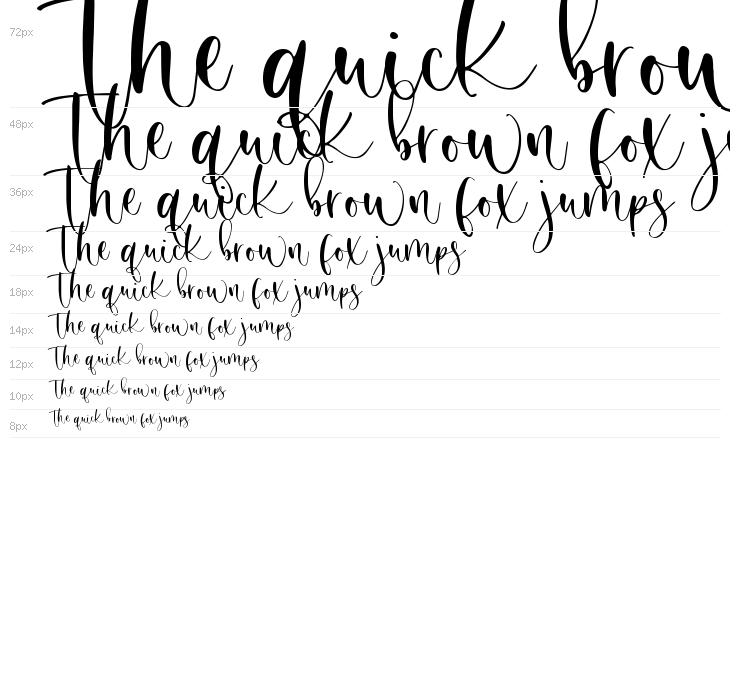 72px The quick brou
48px The quick brown fox ju
36px The quick brown fox jumps
24px The quick brown fox jumps
18px The quick brown fox jumps
14px The quick brown fox jumps
12px The quick brown fox jumps
10px The quick brown fox jumps
8px The quick brown fox jumps